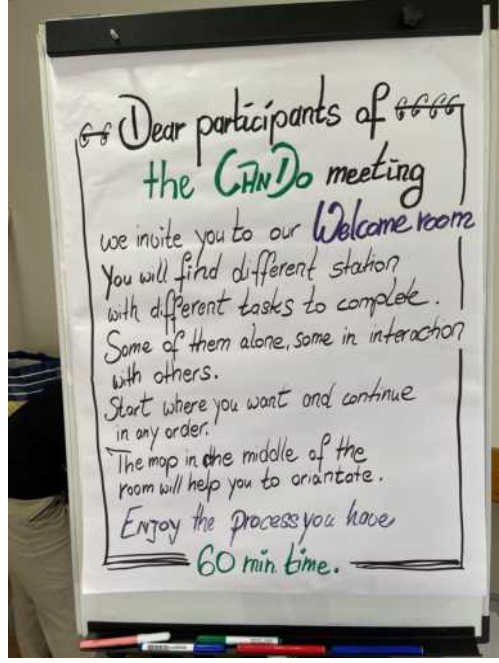 Dear participants of
the CANDo meeting
we invite you to our Welcome room
You will find different station
with different tasks to complete.
Some of them alone, some in interaction
with others.
Start where you want and continue
in any order.
The map in the middle of the
room will help you to oriantate.
Enjoy the process you have
60 min time.